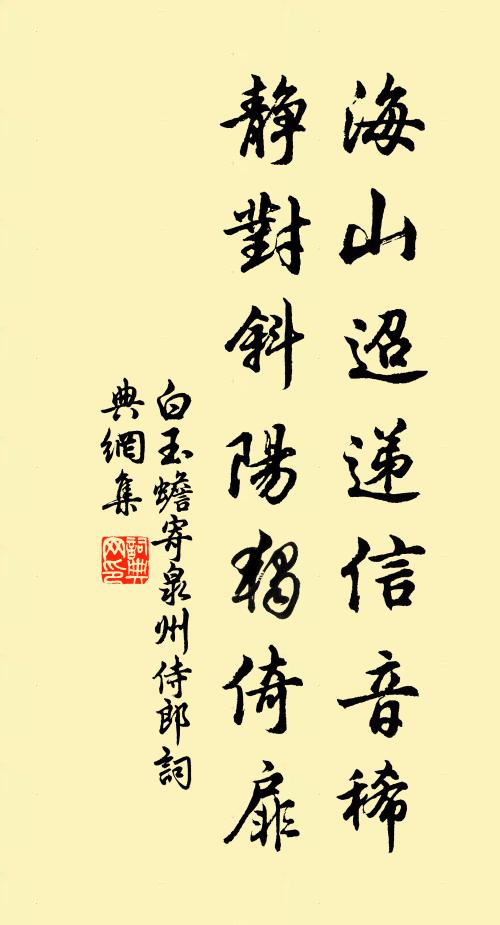 海山迢递信音稀
静對斜陽獨倚扉
白玉蟾寄泉州侍郎詞
典網集
詞典
网印